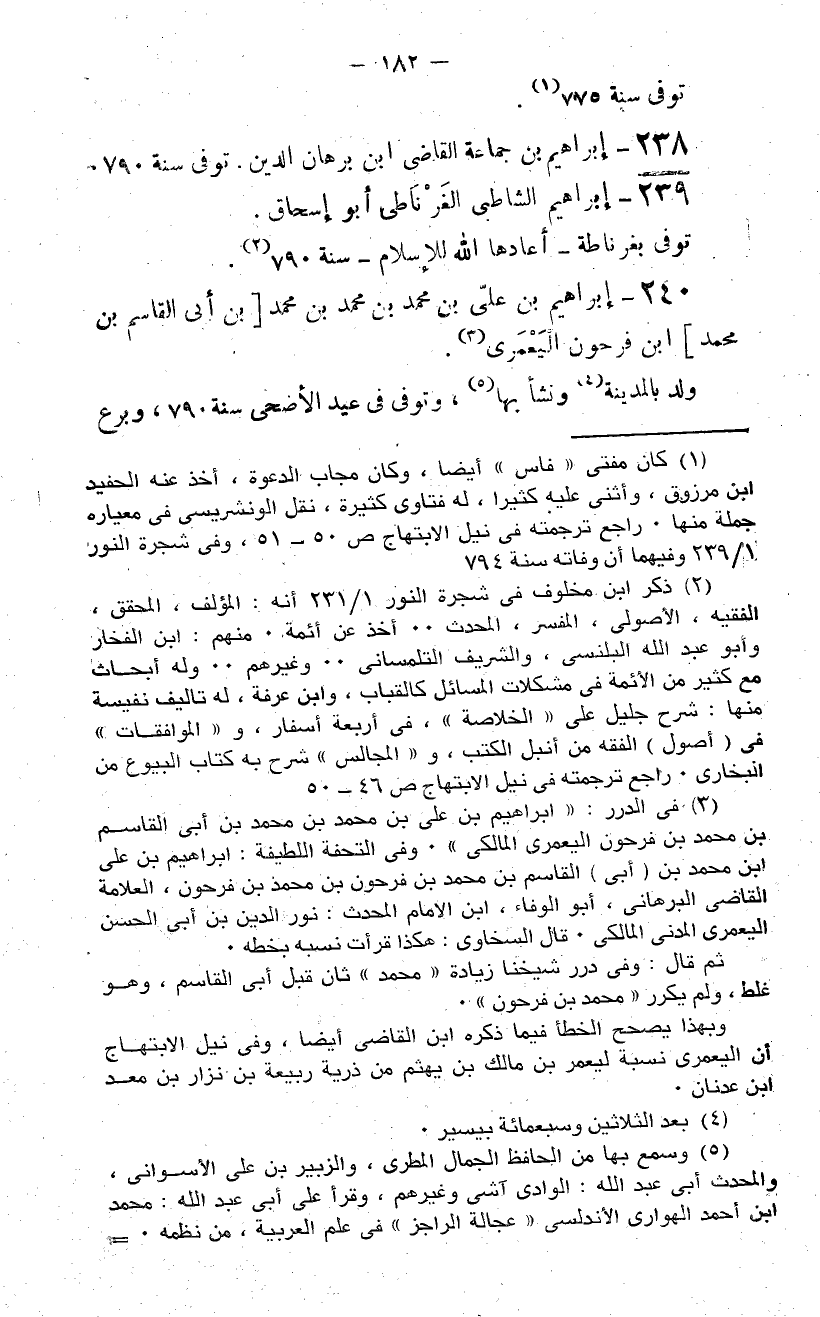 — ١٨٢ —
توفى سنة ٧٧٥(١) .
٢٣٨ – إبراهيم بن جماعة القاضى ابن برهان الدين . توفى سنة ٧٩٠ .
٢٣٩ – إبراهيم الشاطبى الغَرْنَاطى أبو إسحاق .
توفى بغرناطة – أعادها الله للإسلام – سنة ٧٩٠(٢) .
٢٤٠ – إبراهيم بن علىّ بن محمد بن محمد بن محمد [ بن أبى القاسم بن
محمد ] ابن فرحون اليَعْمَرى(٣) .
ولد بالمدينة(٤) ونشأ بها(٥) ، وتوفى فى عيد الأضحى سنة ٧٩٠ ، وبرع
(١) كان مفتى « فاس » أيضا ، وكان مجاب الدعوة ، أخذ عنه الحفيد
ابن مرزوق ، وأثنى عليه كثيرا ، له فتاوى كثيرة ، نقل الونشريسى فى معياره
جملة منها ٠ راجع ترجمته فى نيل الابتهاج ص ٥٠ – ٥١ ، وفى شجرة النور
٢٣٩/١ وفيهما أن وفاته سنة ٧٩٤
(٢) ذكر ابن مخلوف فى شجرة النور ٢٣١/١ أنه : المؤلف ، المحقق ،
الفقيه ، الأصولى ، المفسر ، المحدث ٠٠ أخذ عن أئمة ٠ منهم : ابن الفخار
وأبو عبد الله البلنسى ، والشريف التلمسانى ٠٠ وغيرهم ٠٠ وله أبحاث
مع كثير من الأئمة فى مشكلات المسائل كالقباب ، وابن عرفة ، له تاليف نفيسة
منها : شرح جليل على « الخلاصة » ، فى أربعة أسفار ، و « الموافقات »
فى ( أصول ) الفقه من أنبل الكتب ، و « المجالس » شرح به كتاب البيوع من
البخارى ٠ راجع ترجمته فى نيل الابتهاج ص ٤٦ – ٥٠
(٣) فى الدرر : « ابراهيم بن على بن محمد بن محمد بن أبى القاسم
بن محمد بن فرحون اليعمرى المالكى » ٠ وفى التحفة اللطيفة : ابراهيم بن على
ابن محمد بن ( أبى ) القاسم بن محمد بن فرحون بن محمد بن فرحون ، العلامة
القاضى البرهانى ، أبو الوفاء ، ابن الامام المحدث : نور الدين بن أبى الحسن
اليعمرى المدنى المالكى ٠ قال السخاوى : هكذا قرأت نسبه بخطه ٠
ثم قال : وفى درر شيخنا زيادة « محمد » ثان قبل أبى القاسم ، وهو
غلط ، ولم يكرر « محمد بن فرحون » ٠
وبهذا يصحح الخطأ فيما ذكره ابن القاضى أيضا ، وفى نيل الابتهاج
أن اليعمرى نسبة ليعمر بن مالك بن يهثم من ذرية ربيعة بن نزار بن معد
ابن عدنان ٠
(٤) بعد الثلاثين وسبعمائة بيسير ٠
(٥) وسمع بها من الحافظ الجمال المطرى ، والزبير بن على الأسوانى ،
والمحدث أبى عبد الله : الوادى آشى وغيرهم ، وقرأ على أبى عبد الله : محمد
ابن أحمد الهوارى الأندلسى « عجالة الراجز » فى علم العربية ، من نظمه ٠ =